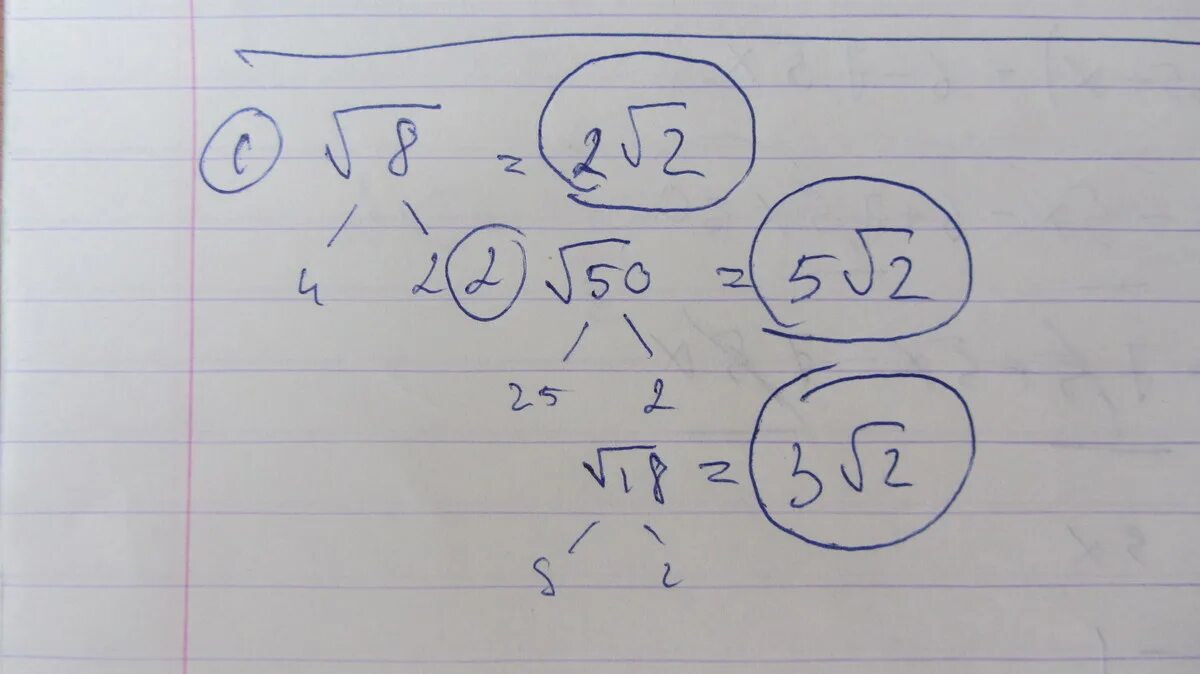 ① √8 = 2√2
4 2
② √50 = 5√2
25 2
√18 = 3√2
9 2